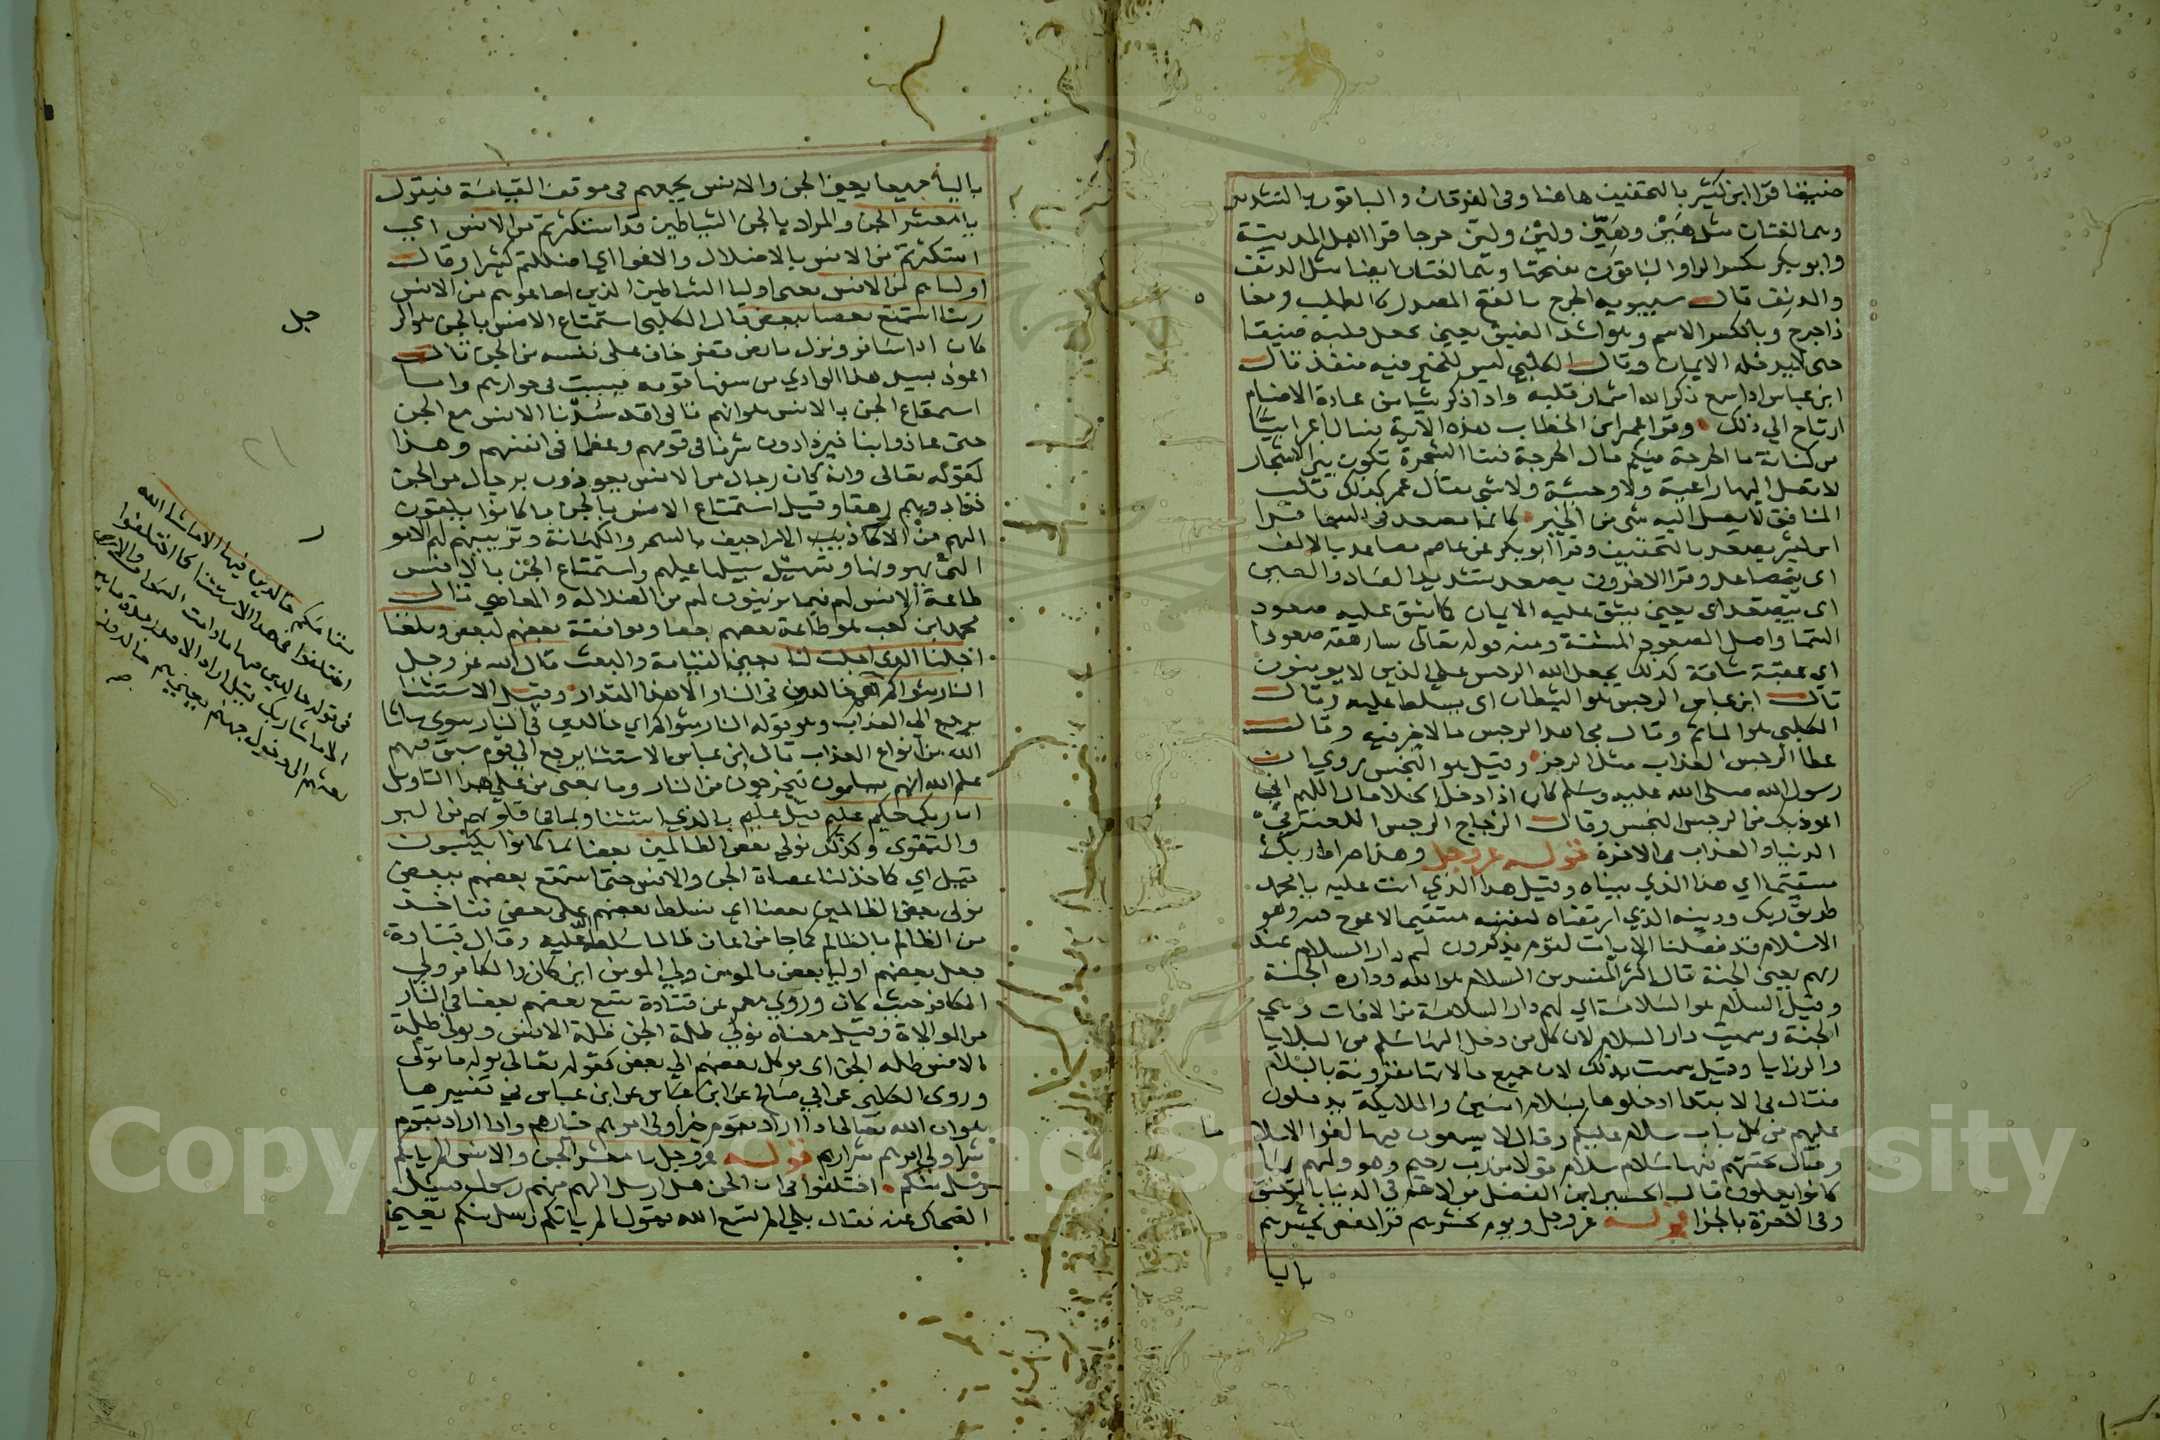 ضيقا قرا ابن كثير بالتخفيف هاهنا وفي الفرقان والباقون بالتشديد
وهما لغتان مثل هَيْن وهَيِّن ولَيْن ولَيِّن حرجا قرا اهل المدينة
وابو بكر بكسر الرا والباقون بفتحها وهما لغتان ايضا مثل الدنَف
والدنِف قال سيبويه الحرج بالفتح المصدر كالطلب ومعنا
ذا حرج وبالكسر الاسم وهو اشد الضيق يعني يجعل قلبه ضيقا
حتى لا يدخله الايمان وقال الكلبي ليس للخير فيه منفذ قال
ابن عباس اذا سمع ذكر الله اشماز قلبه واذا ذكر شيا من عبادة الاصنام
ارتاح الى ذلك وقرا عمر ابن الخطاب هذه الآية فسال اعرابيًّا
من كنانة ما الحرجة فيكم قال الحرجة فينا الشجرة تكون بين الاشجار
لا تصل اليها راعية ولا وحشية ولا شي فقال عمر كذلك قلب
المنافق لا يصل اليه شي من الخير كانما يصعد في السما قرا
ابن كثير يصعد بالتخفيف وقرا ابو بكر عن عاصم يصاعد بالالف
اى يتصاعد وقرا الاخرون يصعد بتشديد الصاد والعين
اى يتصعد اى يعني يشق عليه الايمان كما يشق عليه صعود
السما واصل الصعود المشقة ومنه قوله تعالى سارهقه صعودا
اي عقبة شاقة كذلك يجعل الله الرجس على الذين لا يومنون
قال ابن عباس الرجس هو الشيطان اى يسلط عليه وقال
الكلبي هو الماثم وقال مجاهد الرجس ما لا خير فيه وقال
عطا الرجس العذاب مثل الرجز وقيل هو النجس روي ان
رسول الله صلى الله عليه وسلم كان اذا دخل الخلا قال اللهم اني
اعوذ بك من الرجس النجس وقال الزجاج الرجس اللعنة في
الدنيا والعذاب في الاخرة قوله عز وجل وهذا صراط ربك
مستقيما اي هذا الذي بيناه وقيل هذا الذي انت عليه يا محمد
طريق ربك ودينه الذي ارتضاه لنفسه مستقيما لا عوج فيه وهو
الاسلام قد فصلنا الايات لقوم يذكرون لهم دار السلام عند
ربهم يعني الجنة قال اكثر المفسرين السلام هو الله وداره الجنة
وقيل السلام هو السلامة اي لهم دار السلامة من الافات وهي
الجنة وسميت دار السلام لان كل من دخل اليها سلم من البلايا
والرزايا وقيل سميت بذلك لان جميع حالاتها مقرونة بالسلام
فقال في الابتدا ادخلوها بسلام امنين والملايكة يدخلون
عليهم من كل باب سلام عليكم وقال لا يسمعون فيها لغوا الا سلاما
وقال تحيتهم فيها سلام سلام قولا من رب رحيم وهو وليهم بما
كانوا يعملون قال الحسين ابن الفضل يتولاهم في الدنيا بالتوفيق
وفي الاخرة بالجزا قوله عز وجل ويوم يحشرهم قرا حفص يحشرهم
باليا
باليا جميعا يعني الجن والانس يجمعهم في موقف القيامة فيقول
يا معشر الجن والمراد بالجن الشياطين قد استكثرتم من الانس اي
استكثرتم من الانس بالاضلال والاغوا اي اضللتم كثيرا وقال
اولياهم من الانس يعني اوليا الشياطين الذين اطاعوهم من الانس
ربنا استمتع بعضنا ببعض قال الكلبي استمتاع الانس بالجن هو الرجل
كان اذا سافر ونزل بارض قفر خاف على نفسه من الجن قال
اعوذ بسيد هذا الوادي من سفها قومه فيبيت في جوارهم واما
استمتاع الجن بالانس هو انهم قالوا قد سدنا الانس مع الجن
حتى عاذوا بنا فيزدادون شرفا في قومهم وعظما في انفسهم وهذا
كقوله تعالى وانه كان رجال من الانس يعوذون برجال من الجن
فزادوهم رهقا وقيل استمتاع الانس بالجن ما كانوا يلقون
اليهم من الاكاذيب الاراجيف والسحر والكهانة وتزيينهم لهم الامور
التي يهوونها وتسهيل سبيلها عليهم واستمتاع الجن بالانس
طاعة الانس لهم فيما يزينون لهم من الضلالة والمعاصي قال
محمد ابن كعب هو طاعة بعضهم بعضا وموافقة بعضهم لبعض وبلغنا
اجلنا الذي اجلت لنا يعني القيامة والبعث قال الله عز وجل
النار مثواكم خالدين في النار الا هذا المقدار وقيل الاستثنا
يرجع الى العذاب وهو قوله النار مثواكم اي خالدين في النار سوى ما شا
الله من انواع العذاب قال ابن عباس الاستثنا يرجع الى قوم سبق فيهم
علم الله انهم يسلمون فيخرجون من النار وما بمعنى من على هذا التاويل
ان ربك حكيم عليم قيل عليم بالذي استثنا وبما في قلوبهم من البر
والتقوى وكذلك نولي بعض الظالمين بعضا بما كانوا يكسبون
قيل اي كما خذلنا عصاة الجن والانس حتى استمتع بعضهم ببعض
نولي بعض الظالمين بعضا اي نسلط بعضهم على بعض فناخذ
من الظالم بالظالم كما جا من اعان ظالما سلطه الله عليه وقال قتادة
نجعل بعضهم اوليا بعض فالمومن ولي المومن اين كان والكافر ولي
الكافر حيث كان وروي معمر عن قتادة نتبع بعضهم بعضا في النار
من الموالاة وقيل معناه نولي ظلمة الجن ظلمة الانس ونولي ظلمة
الانس ظلمة الجن اى نوكل بعضهم الى بعض كقوله تعالى نوله ما تولى
وروى الكلبي عن ابي صالح عن ابن عباس في تفسيرها
هو ان الله تعالى اذا اراد بقوم خيرا ولى امرهم خيارهم واذا اراد بقوم
شرا ولى امرهم شرارهم قوله عز وجل يا معشر الجن والانس الم ياتكم
رسل منكم اختلفوا في ان الجن هل ارسل اليهم منهم رسول فسيل
الضحاك عنه فقال بلى الم تسمع الله يقول الم ياتكم رسل منكم يعني
خالدين فيها الا ما شا الله
اختلفوا في هذا الاستثنا كما اختلفوا
في قوله خالدين فيها ما دامت السموات والارض
الا ما شا ربك قيل اراد الا قدر مدة ما بين
بعثهم الى دخول جهنم يعني هم خالدون